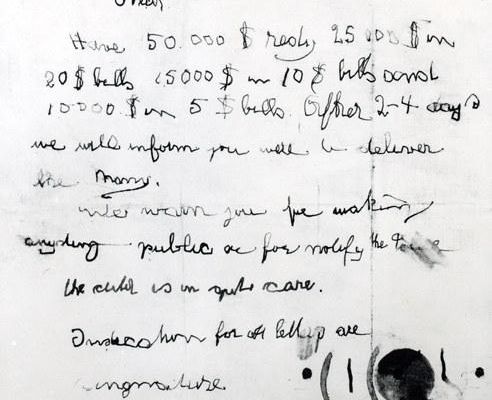 Have 50.000 $ redy 25 000 $ in
20 $ bills 15000 $ in 10 $ bills and
10000 $ in 5 $ bills. After 2-4 days
we will inform you were to deliver
the Mony.
We warn you for making
anyding public or for notify the
the child is in gute care.
Indication for all letters are
singnature